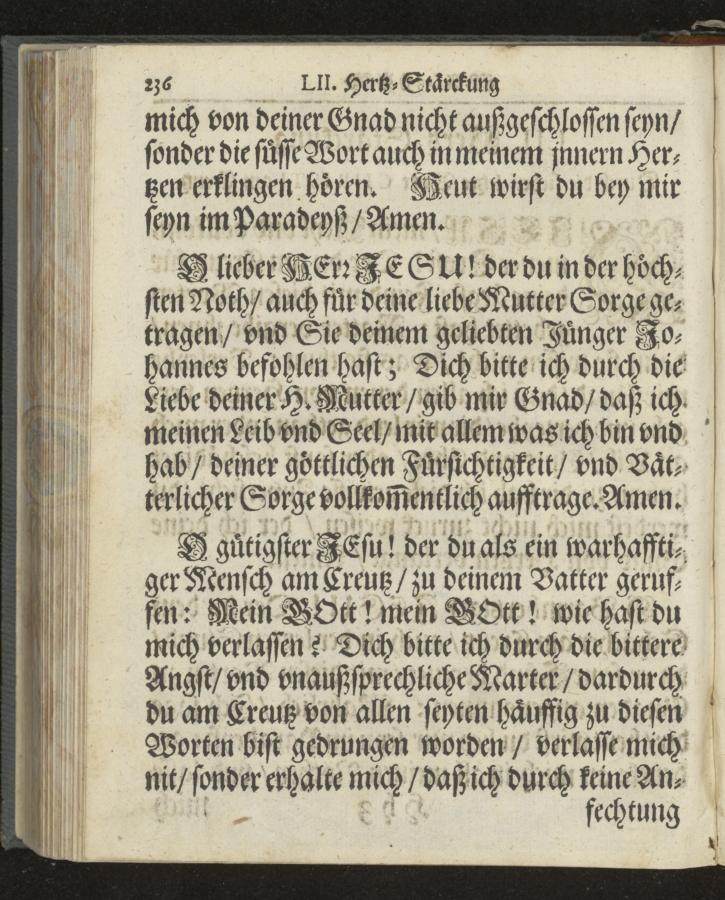 236 LII. Hertz-Stärckung
mich von deiner Gnad nicht außgeschlossen seyn/
sonder die süsse Wort auch in meinem jnnern Her-
tzen erklingen hören. Heut wirst du bey mir
seyn im Paradeyß/ Amen.
O lieber HErr JESU! der du in der höch-
sten Noth/ auch für deine liebe Mutter Sorge ge-
tragen/ vnd Sie deinem geliebten Jünger Jo-
hannes befohlen hast; Dich bitte ich durch die
Liebe deiner H. Mutter/ gib mir Gnad/ daß ich
meinen Leib vnd Seel/ mit allem was ich bin vnd
hab/ deiner göttlichen Fürsichtigkeit/ vnd Vät-
terlicher Sorge vollkom̃entlich aufftrage. Amen.
O gütigster JEsu! der du als ein warhaffti-
ger Mensch am Creutz/ zu deinem Vatter geruf-
fen: Mein GOtt! mein GOtt! wie hast du
mich verlassen? Dich bitte ich durch die bittere
Angst/ vnd vnaußsprechliche Marter/ dardurch
du am Creutz von allen seyten häuffig zu diesen
Worten bist gedrungen worden/ verlasse mich
nit/ sonder erhalte mich/ daß ich durch keine An-
fechtung